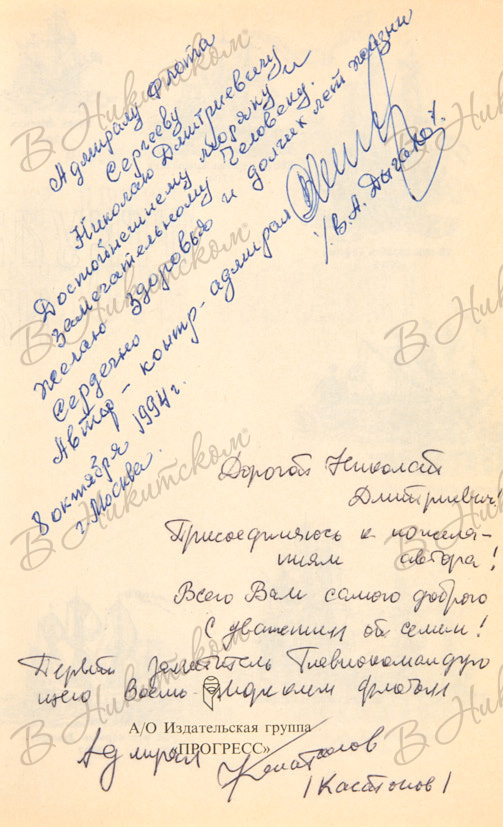 Адмиралу Флота
Сергееву
Николаю Дмитриевичу
Достойнейшему моряку и
Замечательному Человеку.
Желаю здоровья и долгих лет жизни
Сердечно
Автор – контр-адмирал
/В.А. Дыгало/.
8 октября 1994 г.
г. Москва.
Дорогой Николай
Дмитриевич!
Присоединяюсь к пожела-
ниям автора!
Всего Вам самого доброго
С уважением
Первый заместитель Главнокомандую
щего Военно-Морским флотом
А/О Издательская группа
«ПРОГРЕСС»
Адмирал Касатонов
/Касатонов/
В Никитском